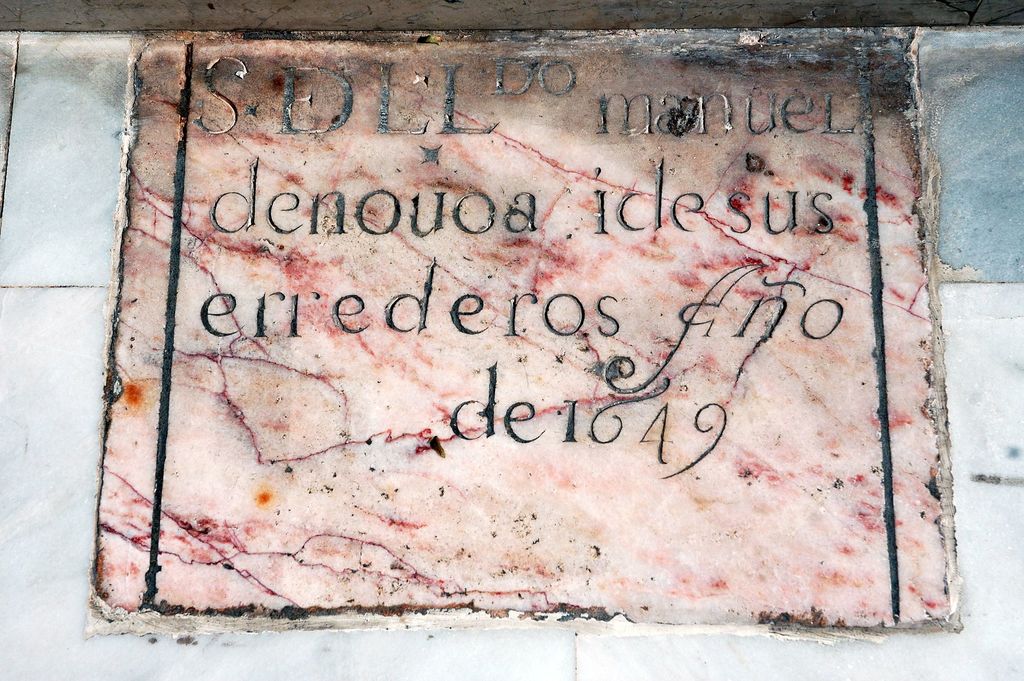 S. D L L.DO manuel
denouoa idesus
errederos Año
de 1649